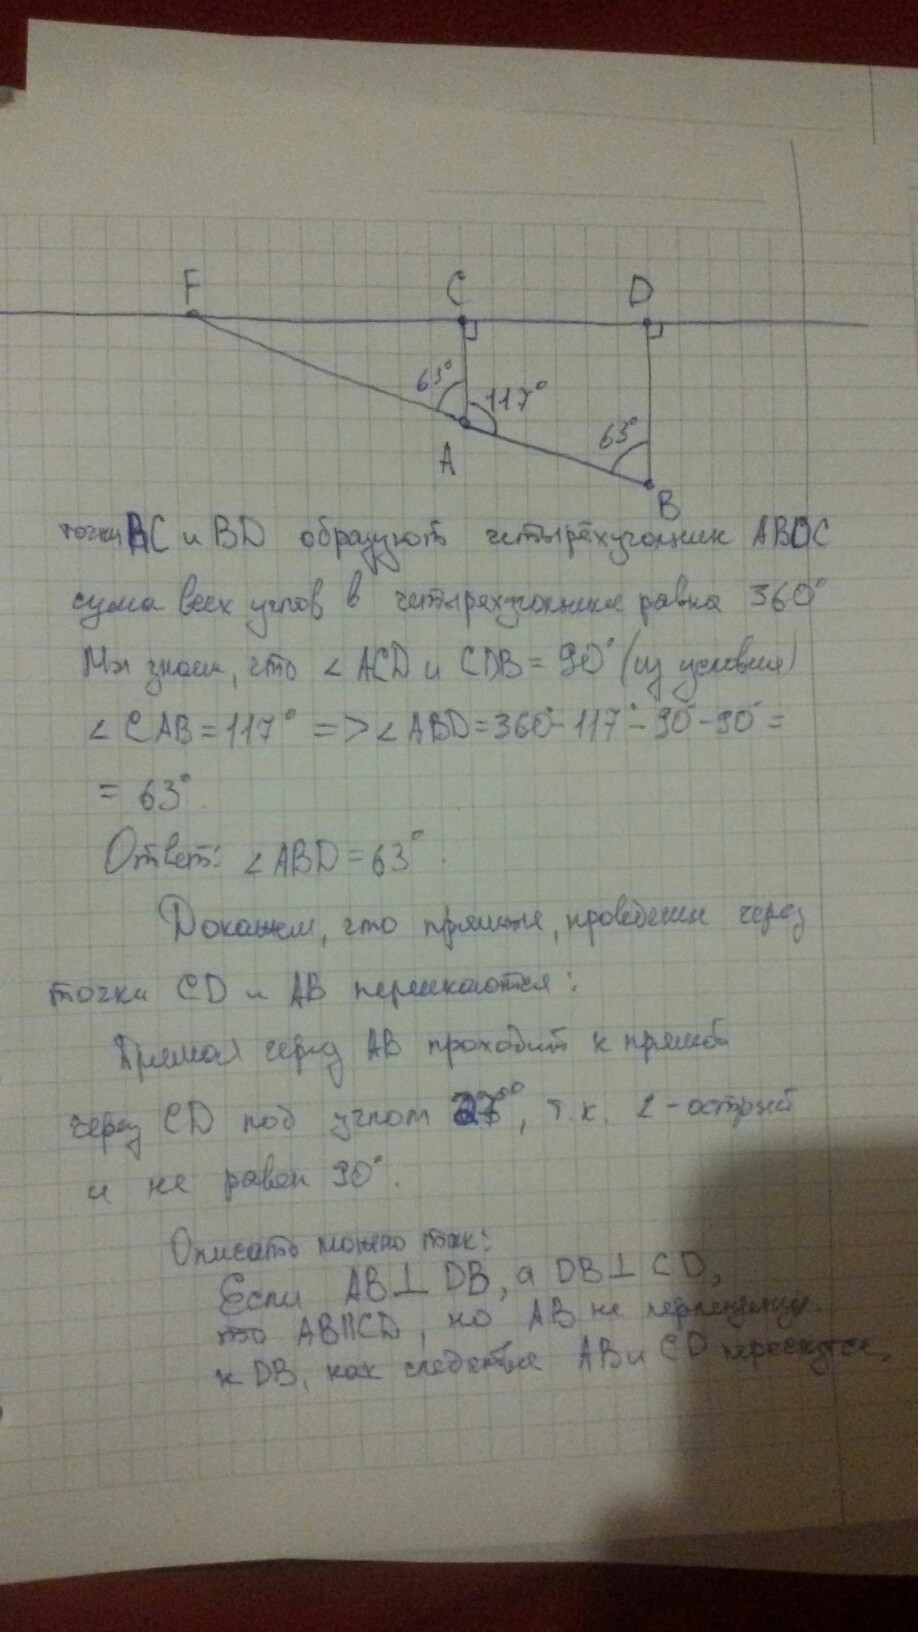 F C D
63° 117°
63°
A
B
точки AC и BD образуют четырёхугольник ABDC
сума всех углов в четырехугольнике равна 360°
Мы знаем, что ∠ ACD и CDB = 90° (из условия)
∠ CAB = 117° => ∠ ABD = 360°- 117°- 90°- 90° =
= 63°.
Ответ: ∠ ABD = 63°.
Докажем, что прямые, проведены через
точки CD и AB пересекаются:
Прямая через AB проходит к прямой
через CD под углом 27°, т.к. ∠ - острый
и не равен 90°.
Описать можно так:
Если AB ⊥ DB, а DB ⊥ CD,
то AB || CD, но AB не перпендикул.
к DB, как следствие AB и CD